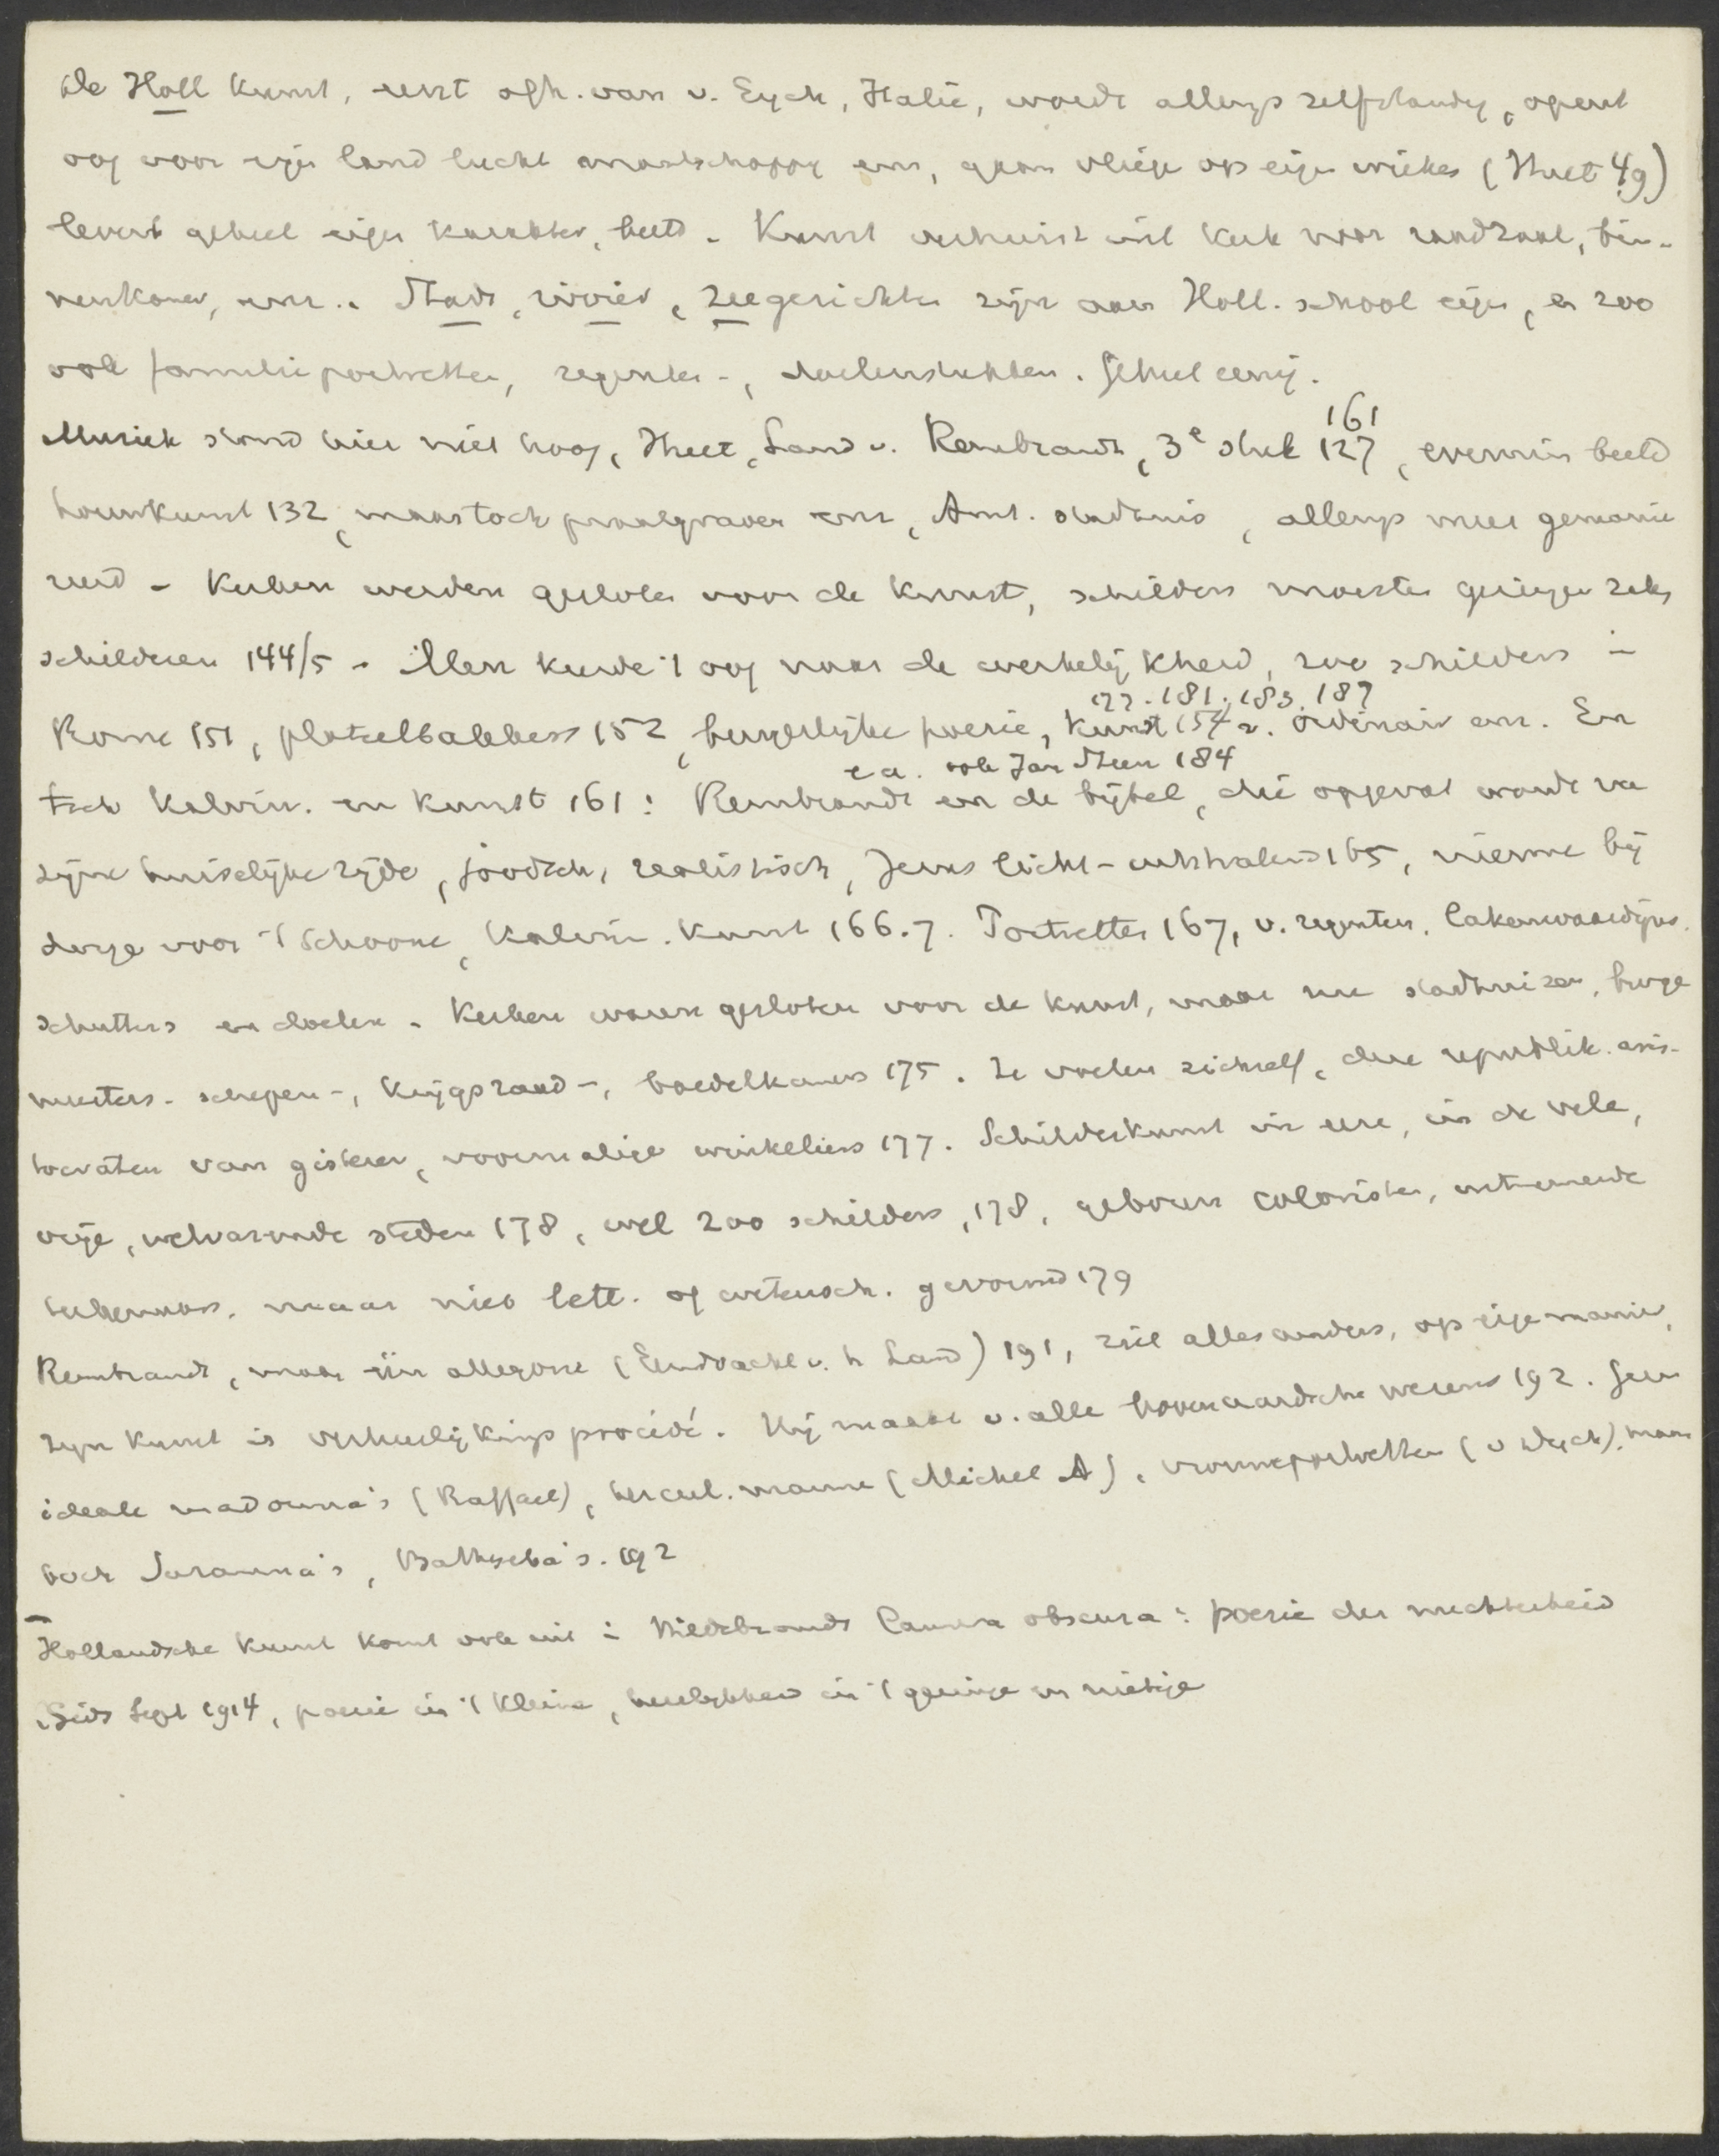 de Holl kunst, eerst afh. van v. Eyck, Italië, wordt allengs zelfstandig, opent
oog voor eigen land lucht maatschappy enz, gaan vliege op eigen wieken (Huet 49)
levert geheel eigen karakter, beeld. Kunst verhuist uit kerk naar raadzaal, bin-
nenkamer, enz.. Stads, rivier, zeegezichten zijn aan Holl. school eigen, en zoo
ook familieportretten, regenten-, doelenstukken. Geheel eenig.
Muziek stond hier niet hoog, Huet, Land v. Rembrandt, 3e stuk 127, evenmin beeld
161
houwkunst 132, maar toch praalgraven enz, Amst. stadhuis, allengs meer gemanie
reerd - Kerken werden gesloten voor de kunst, schilders moesten geringe zaken
schilderen 144/5 - Men keerde 't oog naar de werkelijkheid, zoo schilders in
177. 181. 183. 187
Rome 151, plateelbakkers 152, burgerlijke poezie, kunst 154 v. ordinair enz. En
ea. ook Jan Steen 184
toch Kalvin. en kunst 161: Rembrandt en de bijbel, die opgevat wordt van
zijne huiselijke zijde, joodsch, realistisch, Jezus licht-uitstralend 165, nieuwe bij
drage voor 't schoone, Kalvin. kunst 166.7. Portretten 167, v. regenten, lakenwaardijns.
schutters en doelen - Kerken waren gesloten voor de kunst, maar nu stadhuizen, burge
meesters- schepen-, krijgsraad-, boedelkamers 175. Ze voelen zichzelf, deze republik. aris-
tocraten van gisteren, voormalige winkeliers 177. Schilderkunst in eere, in de vele,
vrije, welvarende steden 178, wel 200 schilders, 178, geboren coloristen, uitnemende
maar niet lett. of wetensch. gevormd 179
Rembrandt, maar één allegorie (Eendracht v. h Land) 191, ziet alles anders, op eigen manier,
zijn kunst is verheerlijkings procédé. Hij maakt v. alle bovenaardsche wezens 192. Geen
ideale madonna's (Raffael), hercul. manne (Michel A), vrouweportretten (v Dyck), maar
toch Suzanna's, Bathseba's. 192
Hollandsche kunst komt ook uit in Hildebrands Camera obscura: poezie der nuchterheid
Gids Sept 1914, poezie in 't kleine, heerlijkheid in 't geringe en nietige